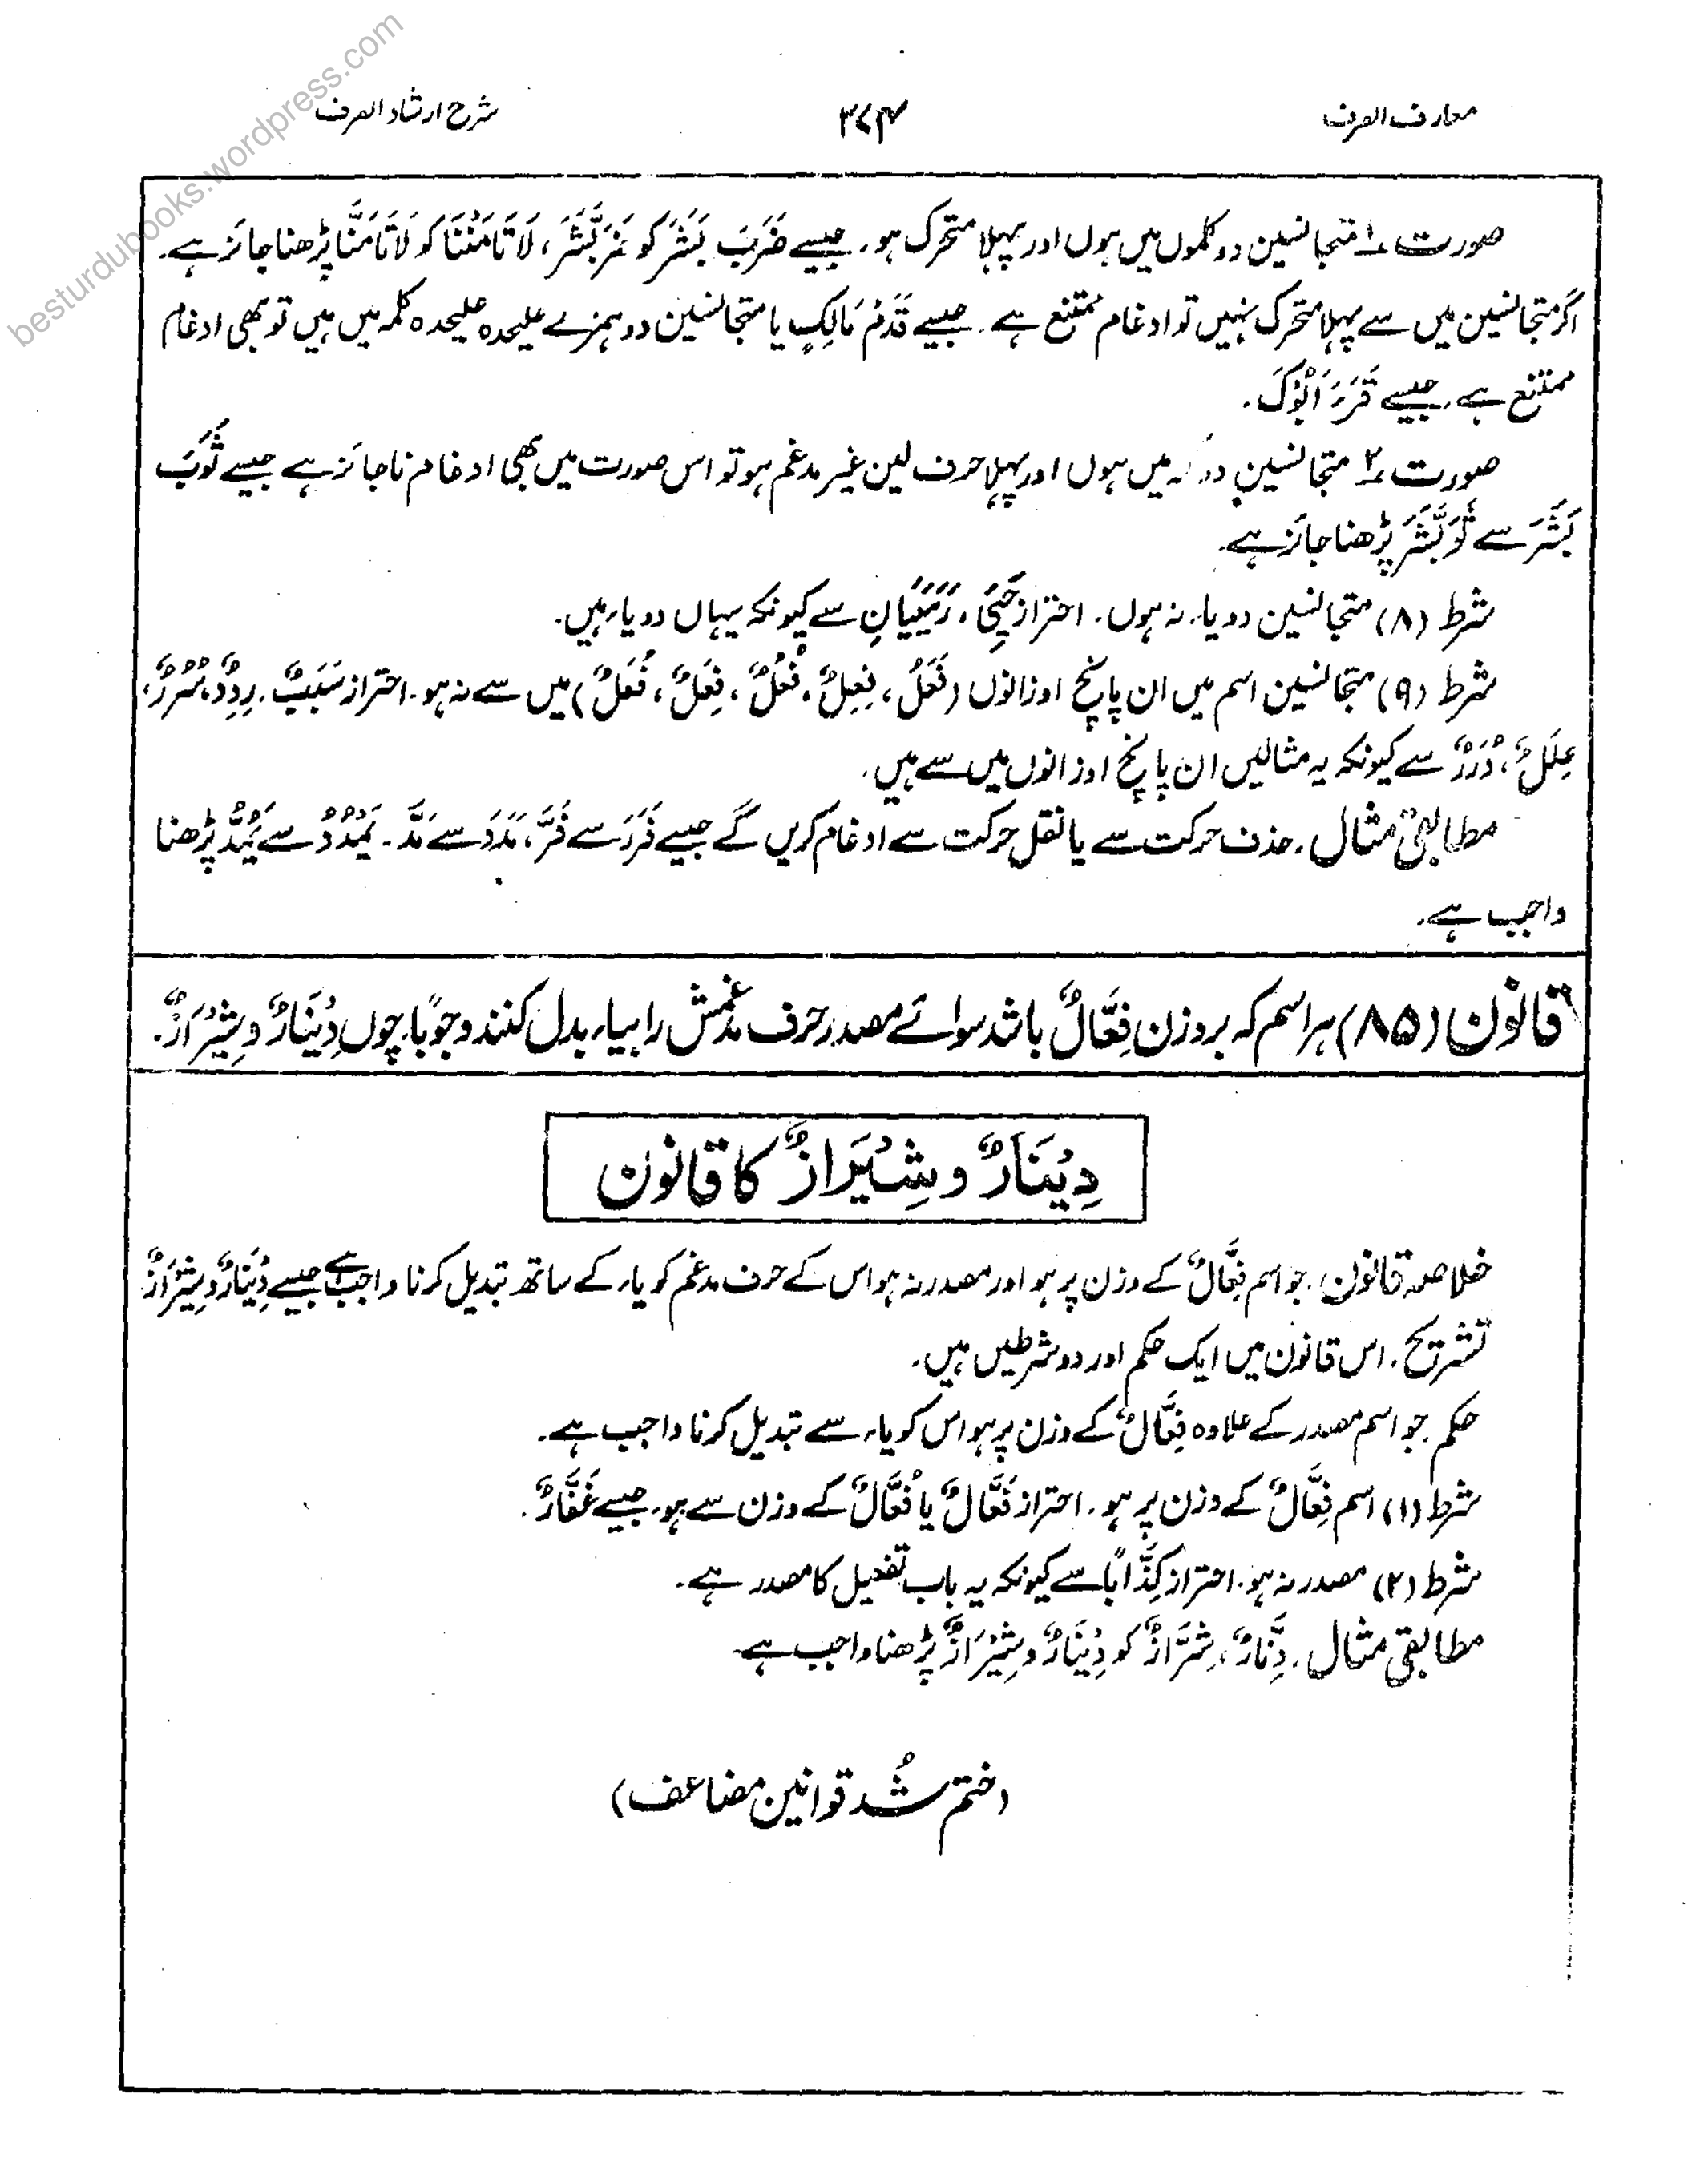 besturdubooks.wordpress.com
معارف الصرف ۳۷۴ شرح ارشاد الصرف
صورت ۱ متجانسین دو کلموں میں ہوں اور پہلا متحرک ہو۔ جیسے ضَرَبَ بَشَرَ کو ضَرَبَّشَرَ، لَا تَامَنُنَا کو لَا تَامَنَّا پڑھنا جائز ہے۔
اگر متجانسین میں سے پہلا متحرک نہیں تو ادغام ممتنع ہے۔ جیسے قَدَمُ مَالِکٍ یا متجانسین دو ہمزے علیحدہ علیحدہ کلمہ میں ہیں تو بھی ادغام
ممتنع ہے۔ جیسے قَرَءَ اَبُوْکَ۔
صورت ۲ متجانسین دو میں ہوں اور پہلا حرف لین غیر مدغم ہو تو اس صورت میں بھی ادغام ناجائز ہے جیسے ثَوْبَ
بَشَرَ سے ثَوَبَّشَرَ پڑھنا جائز ہے۔
شرط (۸) متجانسین دو یاء نہ ہوں۔ احتراز حَیِیَ، رَمَیَیَانِ سے کیونکہ یہاں دو یاء ہیں۔
شرط (۹) متجانسین اسم میں ان پانچ اوزانوں (فَعَلٌ، فِعِلٌ، فُعُلٌ، فِعَلٌ، فُعَلٌ) میں سے نہ ہو۔ احتراز سَبَبٌ۔ رِدِدٌ، سُرُرٌ،
عِلَلٌ، دُرَرٌ سے کیونکہ یہ مثالیں ان پانچ اوزانوں میں سے ہیں۔
مطابقی مثال۔ حذف حرکت سے یا نقل حرکت سے ادغام کریں گے جیسے فَرَرَ سے فَرَّ، مَدَدَ سے مَدَّ۔ یَمْدُدُ سے یَمُدُّ پڑھنا
واجب ہے۔
قانون (۸۵) ہر اسم کہ بر وزن فِعَّالٌ باشد سوائے مصدر حرف مدغمش را بیاء بدل کنند وجوبًا، چوں دِیْنَارٌ و شِیْرَازٌ۔
دِیْنَارٌ و شِیْرَازٌ کا قانون
خلاصہ قانون۔ جو اسم فِعَّالٌ کے وزن پر ہو اور مصدر نہ ہو اس کے حرف مدغم کو یاء کے ساتھ تبدیل کرنا واجب ہے جیسے دِیْنَارٌ و شِیْرَازٌ
تشریح۔ اس قانون میں ایک حکم اور دو شرطیں ہیں۔
حکم۔ جو اسم مصدر کے علاوہ فِعَّالٌ کے وزن پر ہو اس کو یاء سے تبدیل کرنا واجب ہے۔
شرط (۱) اسم فِعَّالٌ کے وزن پر ہو۔ احتراز فَعَّالٌ یا فُعَّالٌ کے وزن سے ہو۔ جیسے غَفَّارٌ۔
شرط (۲) مصدر نہ ہو۔ احتراز کِذَّابًا سے کیونکہ یہ باب تفعیل کا مصدر ہے۔
مطابقی مثال۔ دِنَّارٌ، شِرَّازٌ کو دِیْنَارٌ و شِیْرَازٌ پڑھنا واجب ہے۔
(ختم شُد قوانین مضاعف)